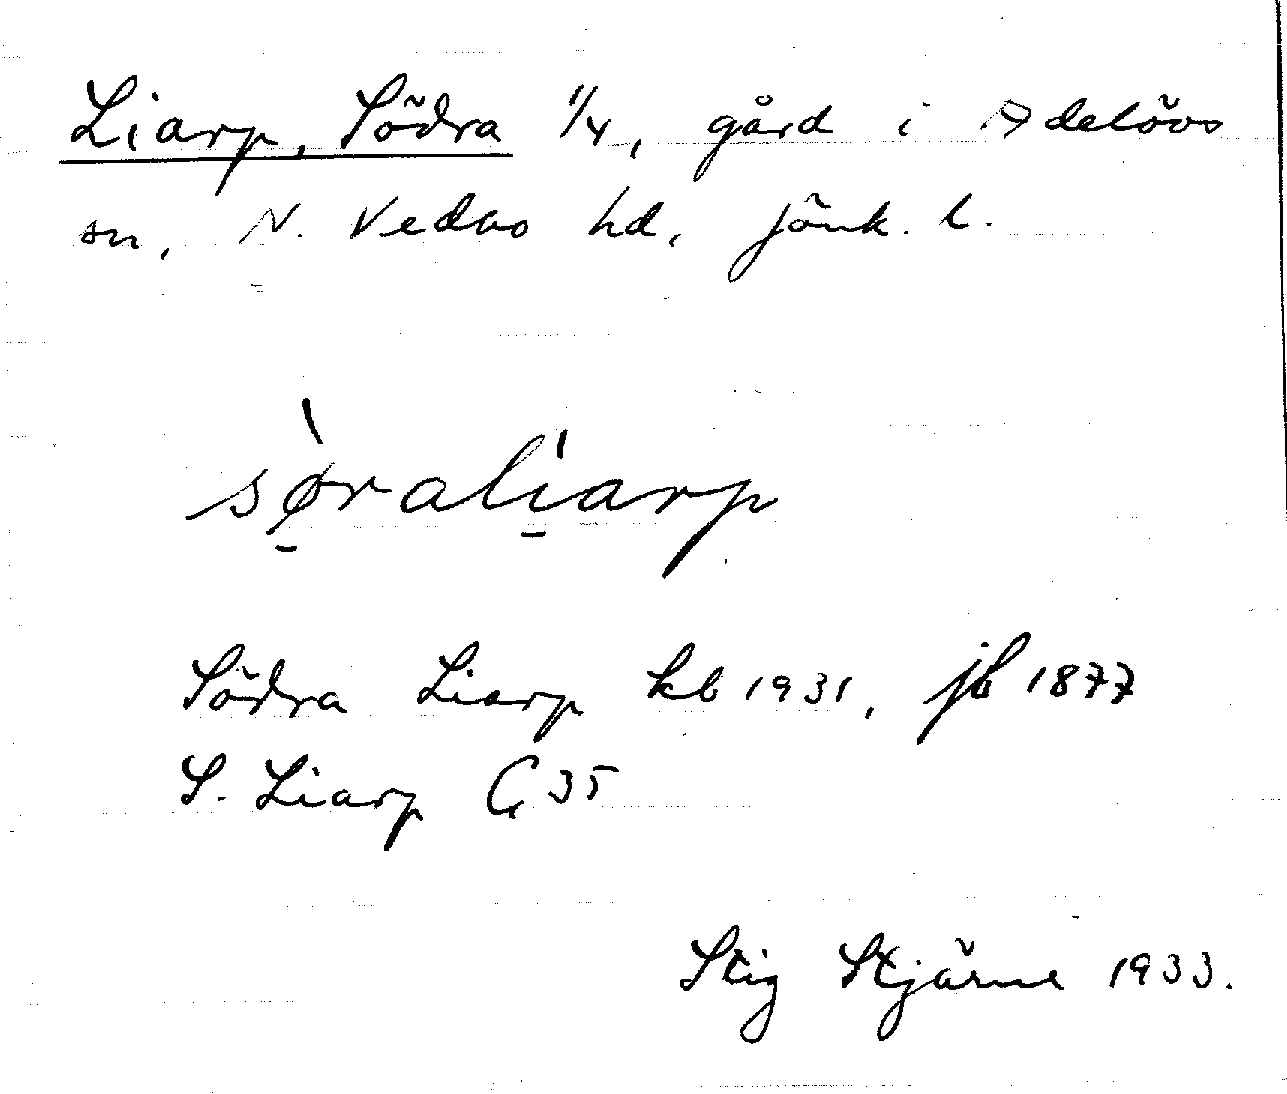 Liarp, Södra 1/4, gård i Adelövs
sn, N. Vedbo hd, Jönk. l.
sø̠̀ralí̠arp
Södra Liarp kb 1931, jb 1877
S. Liarp G 35
Stig Stjärne 1933.